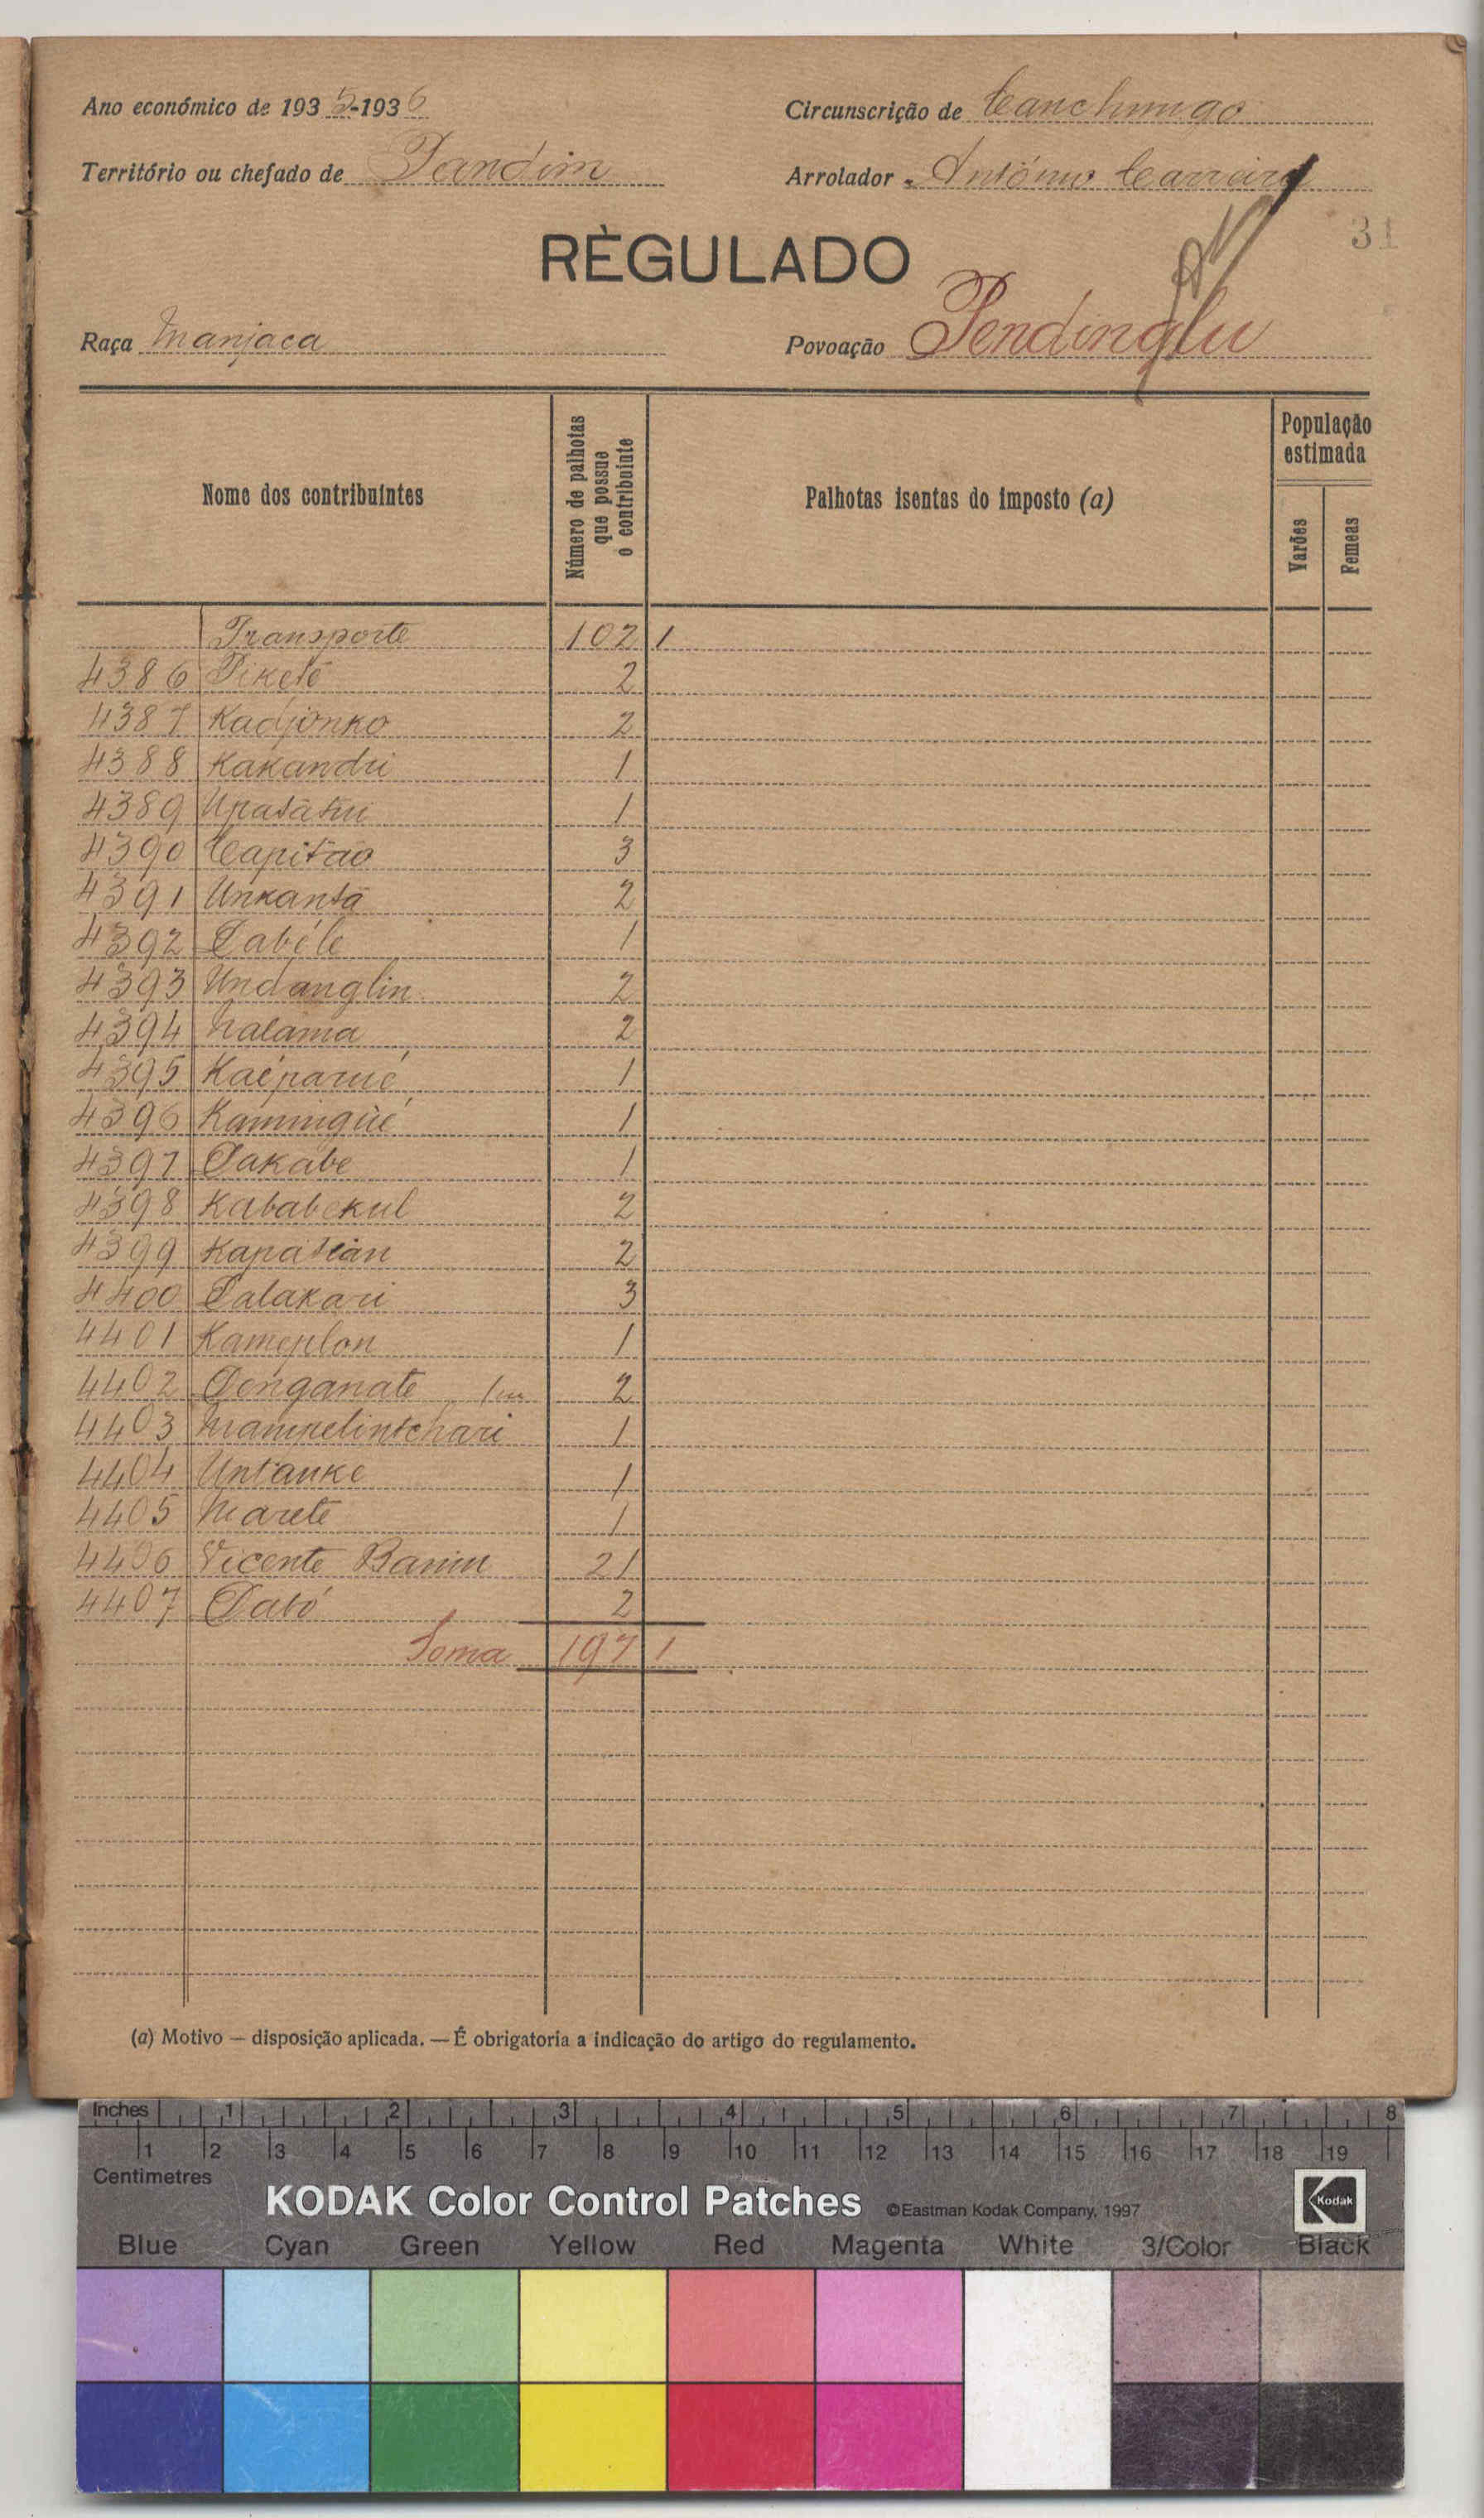 Ano económico de 1935-1936
Circunscrição de Canchungo
Território ou chefado de Pandim
Arrolador António Carreira
31
RÈGULADO
Raça Manjaca
Povoação Pendinglu
Nome dos contribuintes
Número de palhotas que possue o contribuinte
Palhotas isentas do imposto (a)
População estimada
Varões
Femeas
Transporte 102 1
4386 Pikete 2
4387 Kadjonko 2
4388 Kakandu 1
4389 1
4390 Capitão 3
4391 Unkantã 2
4392 Pabéle 1
4393 Undanglin 2
4394 Nalama 2
4395 1
4396 Kamingüé 1
4397 Pakabe 1
4398 Kababekul 2
4399 2
4400 Palakari 3
4401 Kameplon 1
4402 Penganate 2
4403 Mampelintchari 1
4404 Untanke 1
4405 Marete 1
4406 Vicente 21
4407 Pató 2
Soma 197 1
(a) Motivo — disposição aplicada. — É obrigatoria a indicação do artigo do regulamento.
Inches 1 2 3 4 5 6 7 8
1 2 3 4 5 6 7 8 9 10 11 12 13 14 15 16 17 18 19
Centimetres
KODAK Color Control Patches ©Eastman Kodak Company, 1997 Kodak
Blue Cyan Green Yellow Red Magenta White 3/Color Black